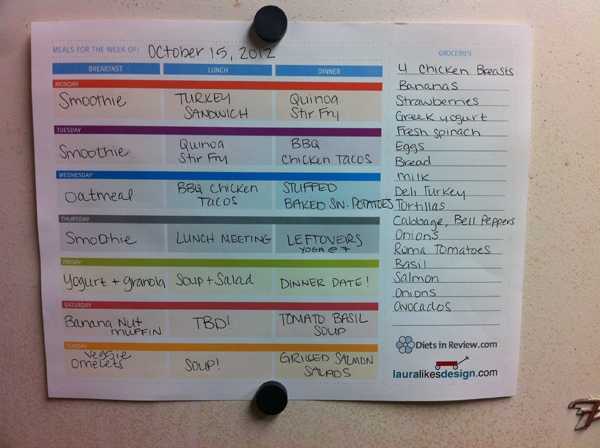 MEALS FOR THE WEEK OF: October 15, 2012
BREAKFAST LUNCH DINNER
MONDAY
Smoothie
TURKEY
SANDWICH
Quinoa
Stir Fry
TUESDAY
Smoothie
Quinoa
Stir Fry
BBQ
Chicken Tacos
WEDNESDAY
Oatmeal
BBQ Chicken
Tacos
STUFFED
BAKED SW. POTATOES
THURSDAY
Smoothie
LUNCH MEETING
LEFTOVERS
YOGA @ 7
FRIDAY
Yogurt + granola
Soup + Salad
DINNER DATE!
SATURDAY
Banana Nut
MUFFIN
TBD!
TOMATO BASIL
SOUP
SUNDAY
Veggie
Omelets
SOUP!
GRILLED SALMON
SALADS
GROCERIES
4 Chicken Breasts
Bananas
Strawberries
Greek yogurt
Fresh spinach
Eggs
Bread
Milk
Deli Turkey
Tortillas
Cabbage, Bell Peppers
Onions
Roma Tomatoes
Basil
Salmon
Onions
Avocados
Diets in Review.com
lauralikesdesign.com